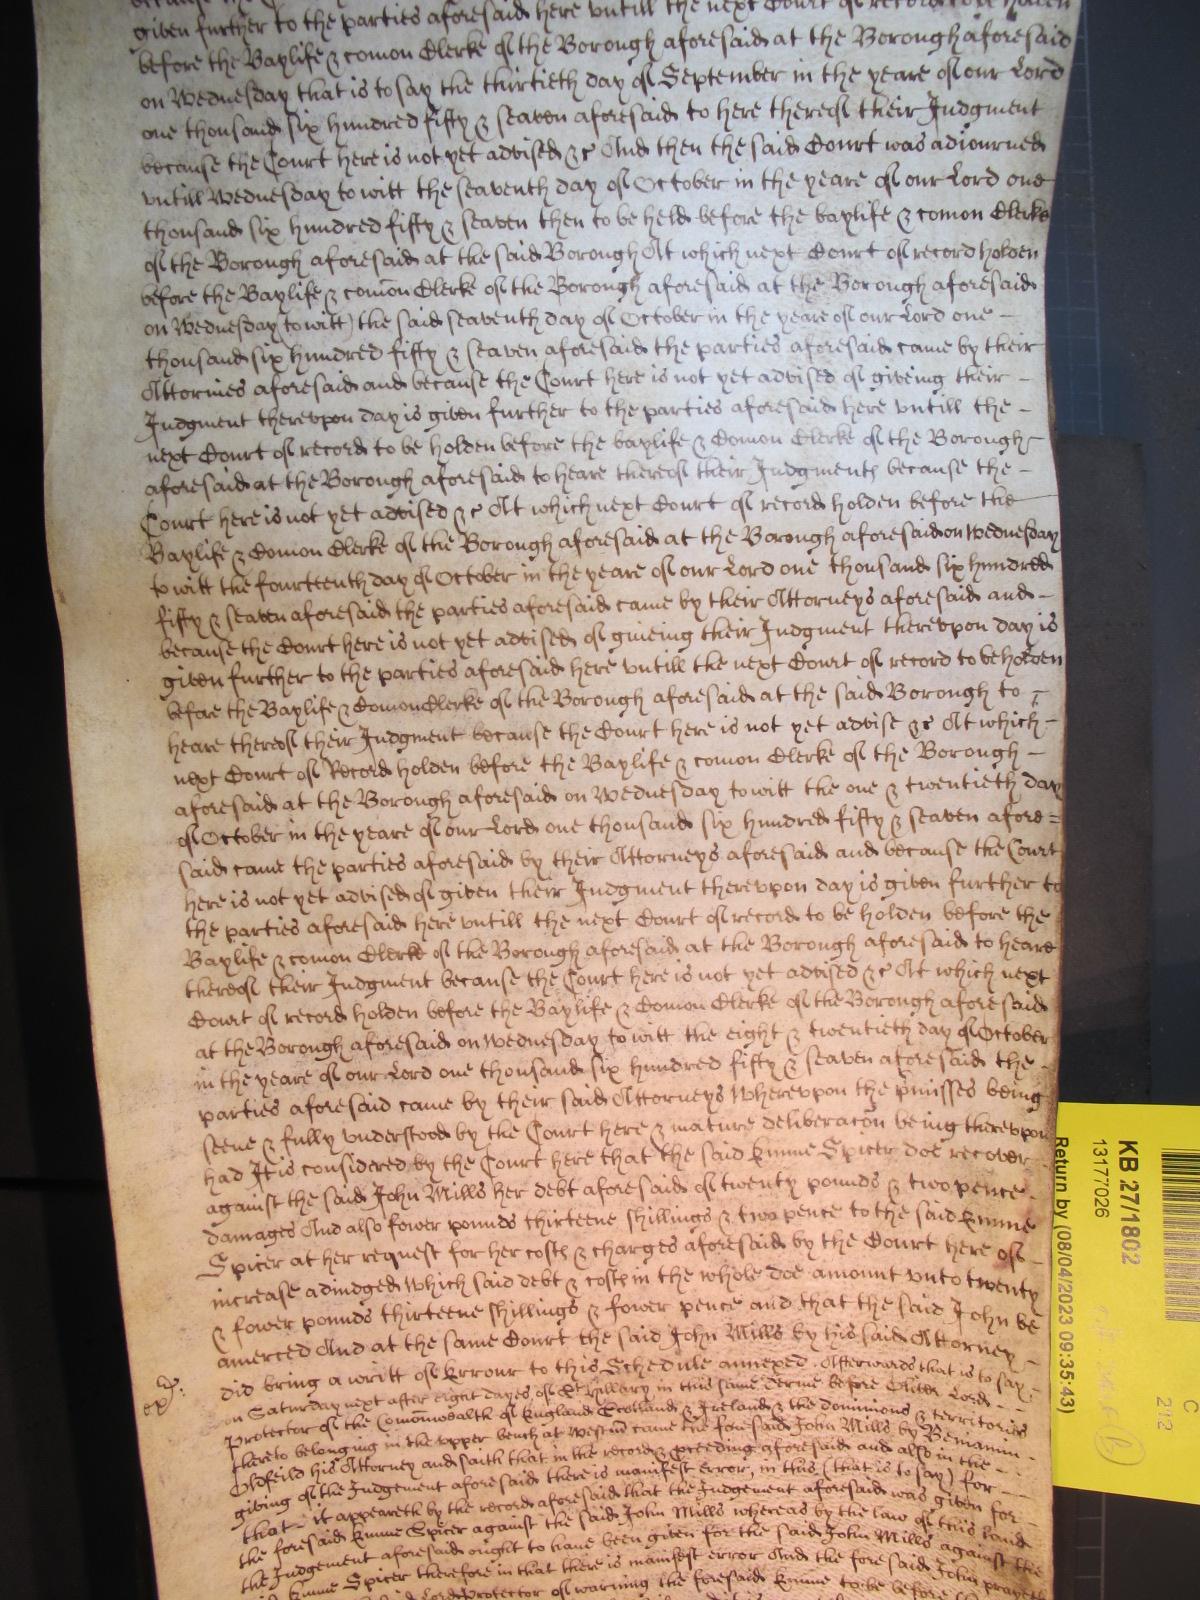 given further to the parties aforesaid here vntill the next Court of record to be holden
before the Baylife & comon Clerke of the Borough aforesaid at the Borough aforesaid
on Wednesday that is to say the thirtieth day of September in the yeare of our Lord
one thousand six hundred fifty & seaven aforesaid to here thereof their Judgment
because the Court here is not yet advised &c And then the said Court was adiourned
vntill Wednesday to witt the seaventh day of October in the yeare of our Lord one
thousand six hundred fifty & seaven then to be held before the baylife & comon Clerke
of the Borough aforesaid at the said Borough At which next Court of record holden
before the Baylife & comon Clerke of the Borough aforesaid at the Borough aforesaid
on Wednesday (to witt) the said seaventh day of October in the yeare of our Lord one –
thousand six hundred fifty & seaven aforesaid the parties aforesaid came by their
Attornies aforesaid and because the Court here is not yet advised of giveing their –
Judgment therevpon day is given further to the parties aforesaid here vntill the –
next Court of record to be holden before the baylife & Comon Clerke of the Borough
aforesaid at the Borough aforesaid to heare thereof their Judgments because the –
Court here is not yet advised &c At which next Court of record holden before the
Baylife & Comon Clerke of the Borough aforesaid at the Borough aforesaid on Wednesday
to witt the fourteenth day of October in the yeare of our Lord one thousand six hundred
fifty & seaven aforesaid the parties aforesaid came by their Attorneys aforesaid and –
because the Court here is not yet advised of giveing their Judgment therevpon day is
given further to the parties aforesaid here vntill the next Court of record to be holden
before the Baylife & Comon Clerke of the Borough aforesaid at the said Borough to –
heare thereof their Judgment because the Court here is not yet advise &c At which –
next Court of Record holden before the Baylife & comon Clerke of the Borough –
aforesaid at the Borough aforesaid on Wednesday to witt the one & twentieth day
of October in the yeare of our Lord one thousand six hundred fifty & seaven afore=
said came the parties aforesaid by their Attorneys aforesaid and because the Court
here is not yet advised of given their Judgment therevpon day is given further to
the parties aforesaid here vntill the next Court of record to be holden before the
Baylife & comon Clerke of the Borough aforesaid at the Borough aforesaid to heare
thereof their Judgment because the Court here is not yet advised &c At which next
Court of record holden before the Baylife & Comon Clerke of the Borough aforesaid
at the Borough aforesaid on Wednesday to witt the eight & twentieth day of October
in the yeare of our Lord one thousand six hundred fifty & seaven aforesaid the –
parties aforesaid came by their said Attorneys Wherevpon the pmisses being
seene & fully vnderstood by the Court here & mature deliberacon being therevpon
had It is considered by the Court here that the said Emme Spicer doe recover
against the said John Mills her debt aforesaid of twenty pounds & two pence
damages And also fower pounds thirteene shillings & two pence to the said Emme
Spicer at her request for her costs & charges aforesaid by the Court here of –
increase adiudged Which said debt & costs in the whole doe amount vnto twenty
& fower pounds thirteene shillings & fower pence and that the said John be
amerced And at the same Court the said John Mills by his said Attorney –
did bring a writt of Errour to this Schedule annexed. Afterwards that is to say
on Saturday next after eight dayes of St Hillary in this same terme before Oliver Lord –
Protector of the Comonwealth of England Scotland & Ireland & the dominions & territories
thereto belonging in the vpper bench at Westm came the foresaid John Mills by Beniamin –
Oldfeild his Attorney and saith that in the record & pceeding aforesaid and also in the –
giving of the Judgement aforesaid there is manifest error, in this (that is to say) for –
that it appeareth by the record aforesaid that the Judgement aforesaid was given for –
the foresaid Emme Spicer against the said John Mills whereas by the law of this land
the Judgement aforesaid ought to have been given for the said John Mills against the
Emme Spicer therefore in that there is manifest error And the foresaid John prayeth
Lord Protector of warning the foresaid Emme to be before
KB 27/1802
13177026
Return by (08/04/2023 09:35:43)
C
212